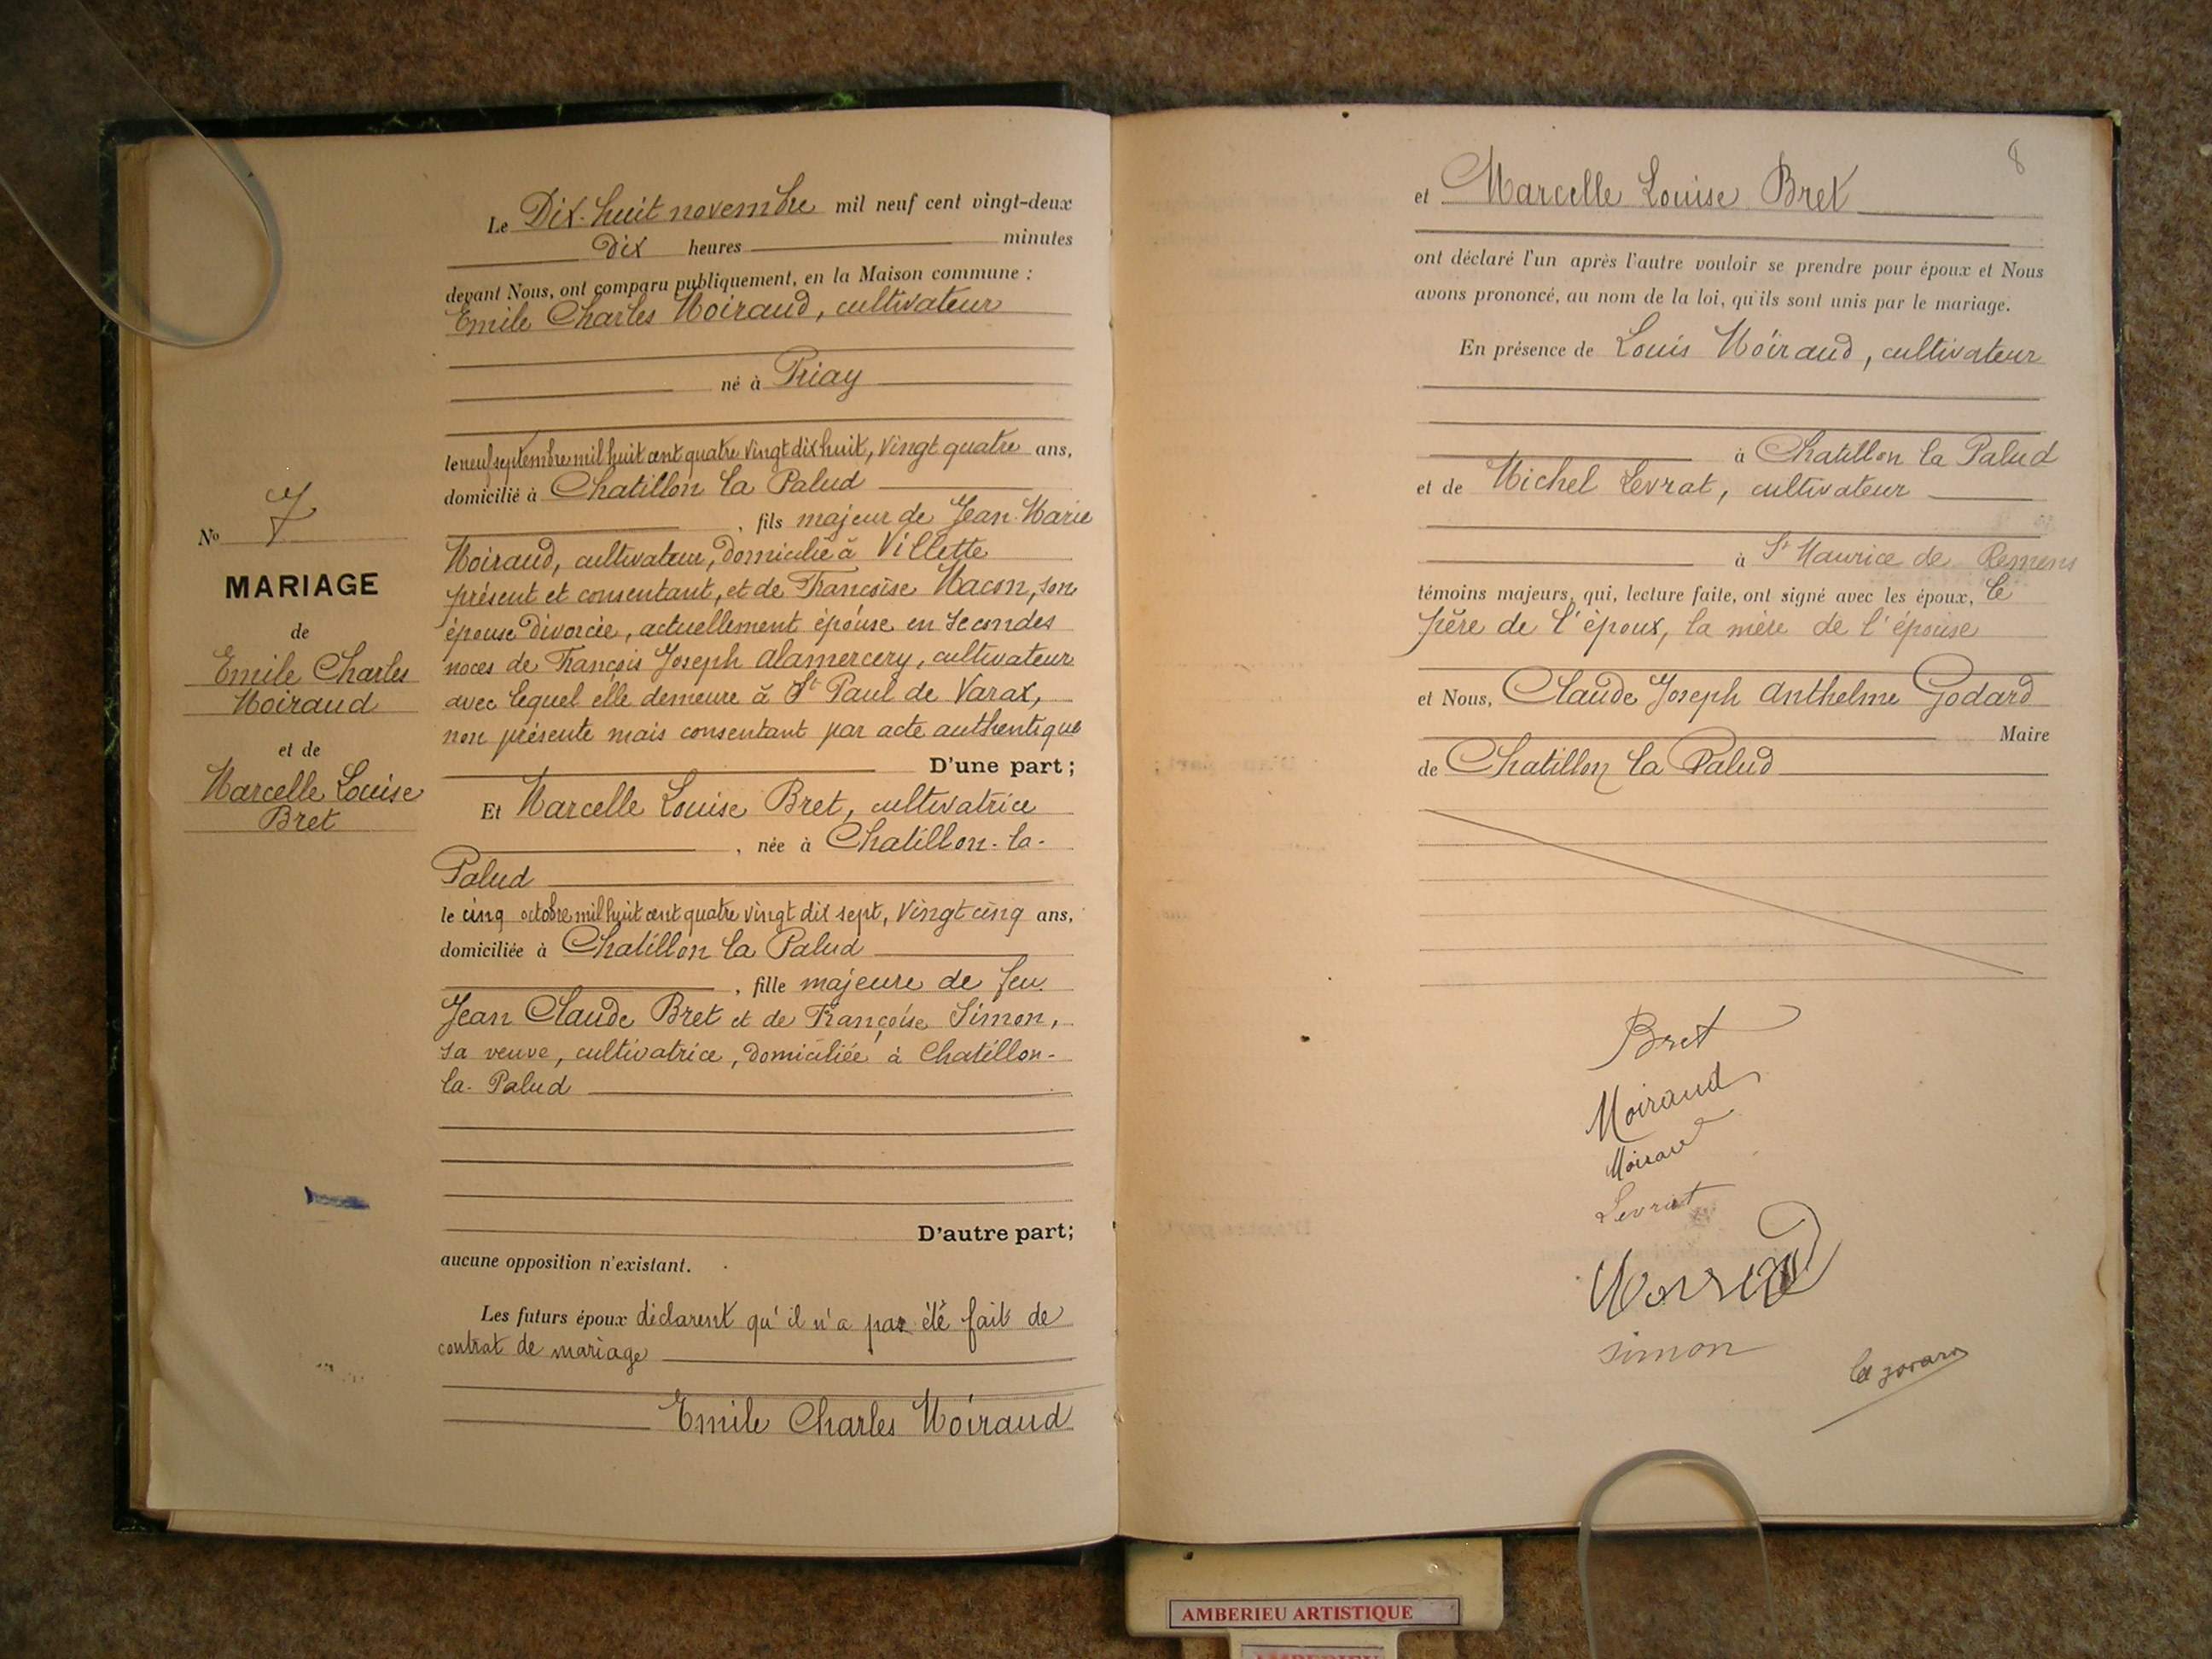 Le Dix-huit novembre mil neuf cent vingt-deux
Dix heures minutes
devant Nous, ont comparu publiquement, en la Maison commune :
Emile Charles Moiraud, cultivateur
né à Priay
le neuf septembre mil huit cent quatre vingt dix huit, vingt quatre ans,
domicilié à Chatillon la Palud
, fils majeur de Jean-Marie
Moiraud, cultivateur, domicilié à Villette
présent et consentant, et de Françoise Macon, son
épouse divorcée, actuellement épouse en secondes
noces de François Joseph Alamercery, cultivateur
avec lequel elle demeure à St Paul de Varax,
non présente mais consentant par acte authentique
D'une part ;
Et Marcelle Louise Bret, cultivatrice
, née à Chatillon-la-
Palud
le cinq octobre mil huit cent quatre vingt dix sept, vingt cinq ans,
domiciliée à Chatillon la Palud
, fille majeure de feu
Jean Claude Bret et de Françoise Simon,
sa veuve, cultivatrice, domiciliée à Chatillon-
la-Palud
D'autre part;
aucune opposition n'existant.
Les futurs époux déclarent qu'il n'a pas été fait de
contrat de mariage
Emile Charles Moiraud
No 7
MARIAGE
de
Emile Charles
Moiraud
et de
Marcelle Louise
Bret
8
et Marcelle Louise Bret
ont déclaré l'un après l'autre vouloir se prendre pour époux et Nous
avons prononcé, au nom de la loi, qu'ils sont unis par le mariage.
En présence de Louis Moiraud, cultivateur
à Chatillon la Palud
et de Michel Levrat, cultivateur
à St Maurice de Remens
témoins majeurs, qui, lecture faite, ont signé avec les époux, le
père de l'époux, la mère de l'épouse
et Nous, Claude Joseph Anthelme Godard
Maire
de Chatillon la Palud
Bret
Moiraud
Moiraud
Levrat
simon
AMBERIEU ARTISTIQUE
AMBERIEU